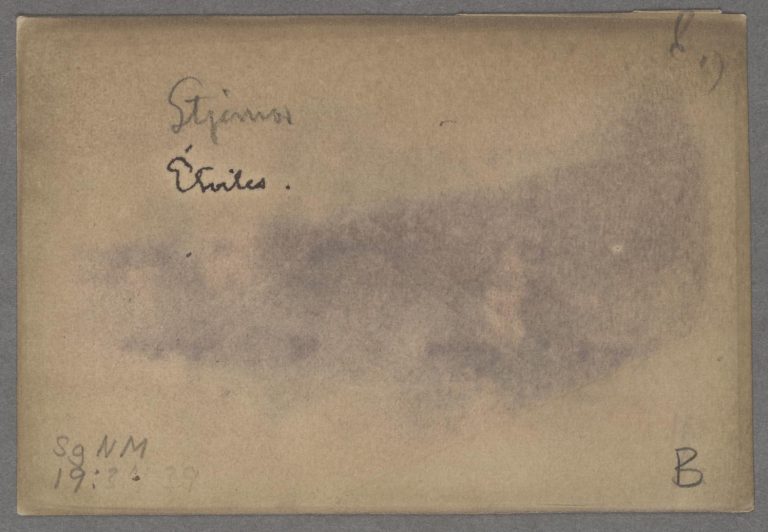 Stjärnor
Étoiles.
Sg NM
19:
B